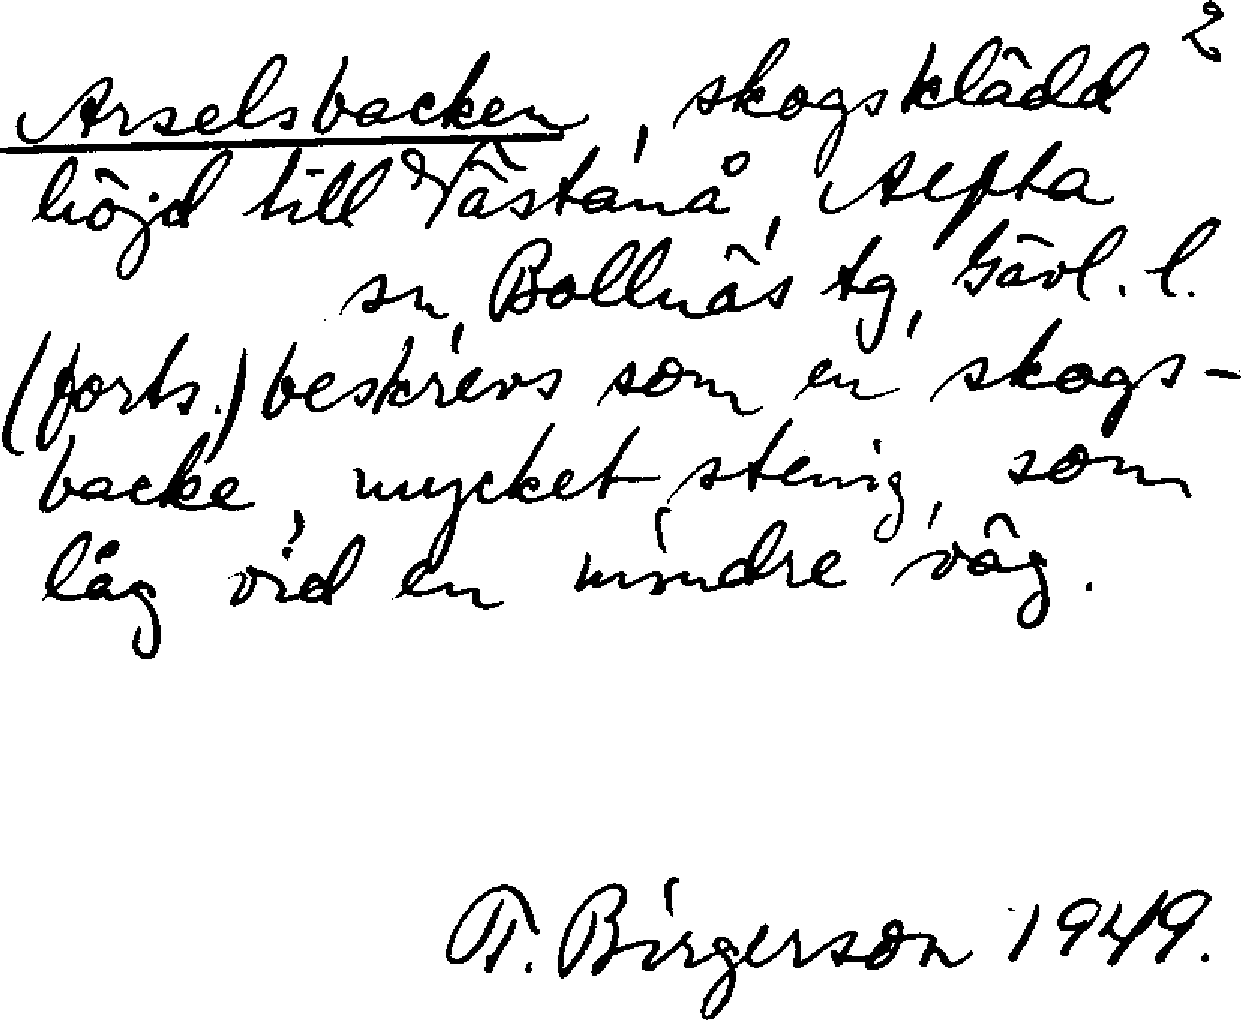 2
Arselsbacken, skogsklädd
höjd till Västanå, Alfta
sn, Bollnäs tg, Gävl. l.
(forts.) beskrevs som en skogs-
backe, mycket stenig, som
låg vid en mindre väg.
T. Birgerson 1949.